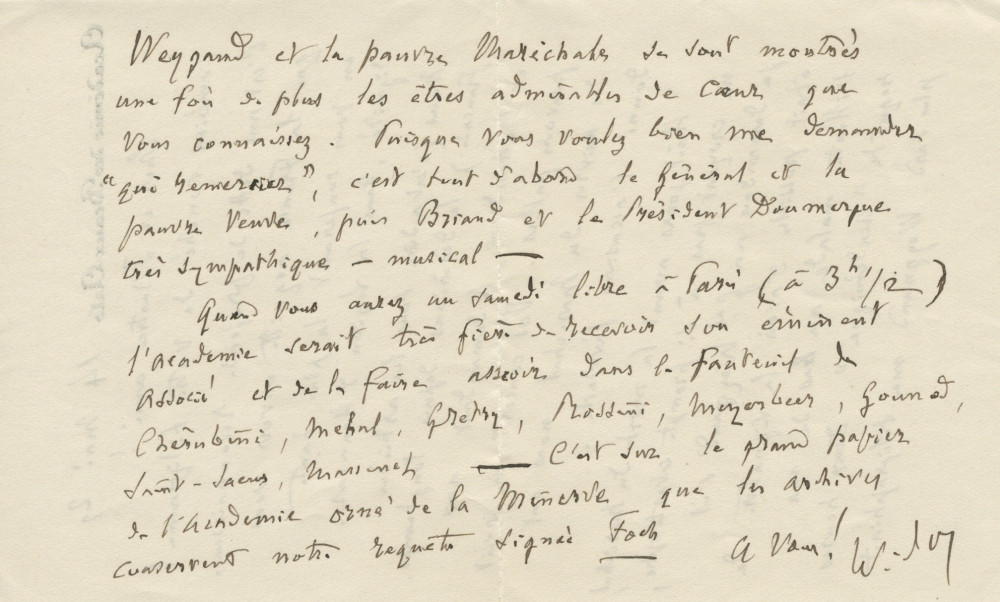 Weygand et la pauvre Maréchale se sont montrés
une fois de plus les êtres admirables de cœur que
vous connaissez. Puisque vous voulez bien me demander
"qui remercier", c'est tout d'abord le Général et la
pauvre veuve, puis Briand et le Président Doumergue
très sympathique — musical —
Quand vous aurez un samedi libre à Paris (à 3h 1/2)
l'Academie serait très fière de recevoir son éminent
Associé et de le faire asseoir dans le fauteuil de
Chérubini, Mehul, Gretry, Rossini, Meyerbeer, Gounod,
Saint-Saens, Massenet — C'est sur le grand papier
de l'Academie orné de la Minerve que les archives
conservent notre requête signée Foch
A vous!